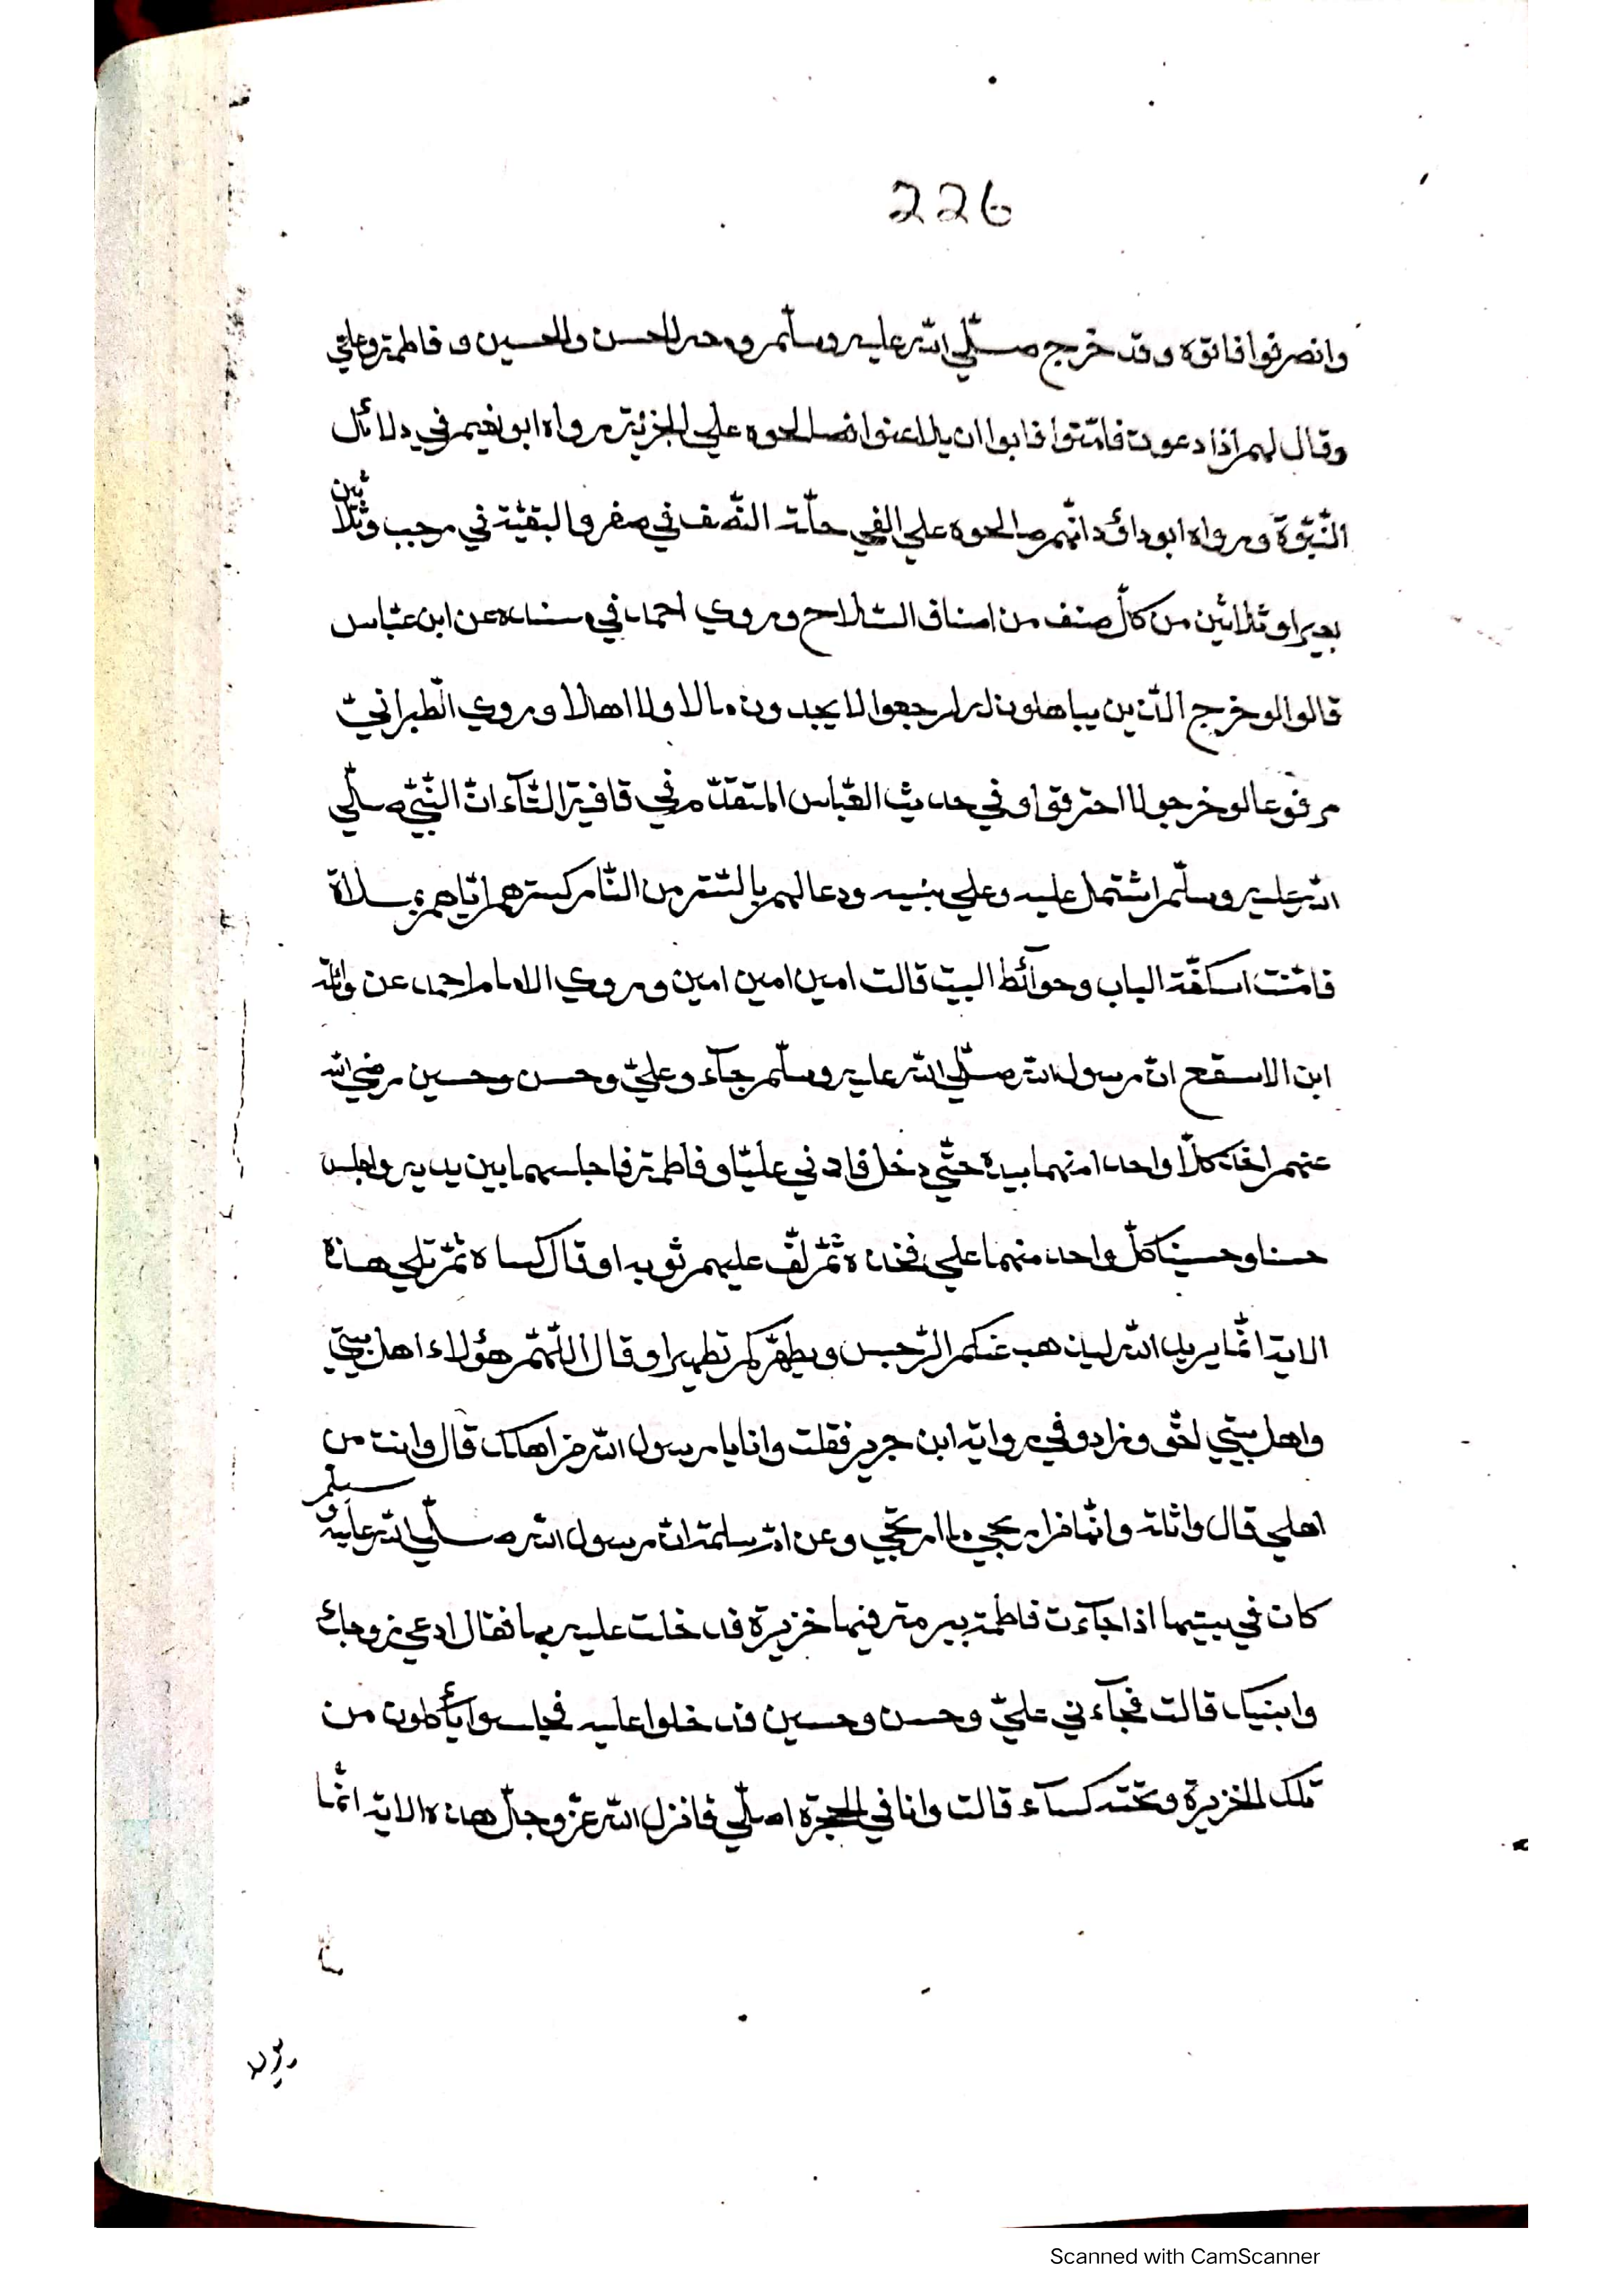 226
وانصرفوا فاتوه وقد خرج صلّي الله عليه وسلّم ومعه الحسن والحسين وفاطمة وعليّ
وقال لهم اذا دعوت فامّنوا فابوا ان يلاعنوا فصالحوه علي الجزية رواه ابو نعيم في دلائل
النّبوّة ورواه ابو داؤد انّهم صالحوه علي الفي حلّة النّصف في صفر والبقيّة في رجب وثلاثين
بعيرا وثلاثين من كلّ صنف من اصناف السّلاح وروي احمد في مسنده عن ابن عبّاس
قالوا لو خرج الّذين يباهلونه لرجعوا لا يجدون مالا ولا اهلا وروي الطّبرانيّ
مرفوعا لو خرجوا لاحترقوا وفي حديث العبّاس المتقدّم في قافية التّاء انّ النّبيّ صلّي
الله عليه وسلّم اشتمل عليه وعلي بنيه ودعا لهم بالسّتر من النّار كستره ايّاهم بملاءة
فامّنت اسكفّة الباب وحوآئط البيت قالت امين امين امين وروي الامام احمد عن واثلة
ابن الاسقع انّ رسول الله صلّي الله عليه وسلّم جآء وعليّ وحسن وحسين رضي الله
عنهم اخذ كلّا واحدا منهما بيده حتّي دخل فادني عليّا وفاطمة فاجلسهما بين يديه واجلس
حسنا وحسينا كلّ واحد منهما علي فخذه ثمّ لفّ عليهم ثوبه او قال كساه ثمّ تلي هذه
الاية انّما يريد الله ليذهب عنكم الرّجس ويطهّركم تطهيرا وقال اللّهمّ هؤلاء اهل بيتي
واهل بيتي احقّ وزاد في رواية ابن جرير فقلت وانا يا رسول الله من اهلك قال وانت من
اهلي قال واثلة وانّها من ارجي ما ارتجي وعن امّ سلمة انّ رسول الله صلّي الله عليه وسلم
كان في بيتها اذا جآءت فاطمة ببرمة فيها خزيرة فدخلت عليه بها فقال ادعي زوجك
وابنيك قالت فجآءني عليّ وحسن وحسين فدخلوا عليه فجلسوا يأكلون من
تلك الخزيرة وتحته كسآء قالت وانا في الحجرة اصلّي فانزل الله عزّ وجلّ هذه الاية انّما
Scanned with CamScanner